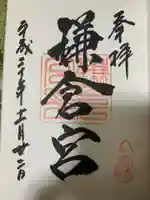 奉拝
鎌倉宮
平成三十年十一月廿二日